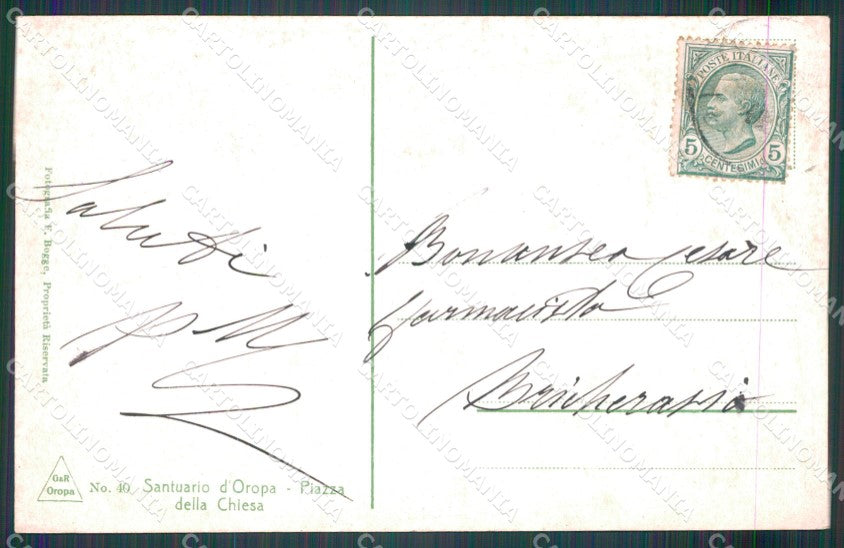 POSTE ITALIANE
5 CENTESIMI 5
Fotografia F. Bogge, Proprietà Riservata
Saluti
PM
Bonansea Cesare
farmacista
Bricherasio
G&R
Oropa
No. 40 Santuario d'Oropa - Piazza
della Chiesa
CARTOLINOMANIA